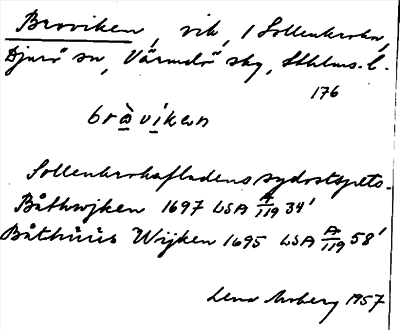 Broviken, vik, i Sollenkroka,
Djurö sn, Värmdö skg, Sthlms. l.
176
bròvíken
Sollenkrokafladens sydostspets.
Båthwjken 1697 LSA A/119 34'
Båthuus Wijken 1695 LSA A/119 58'
Lena Moberg 1957